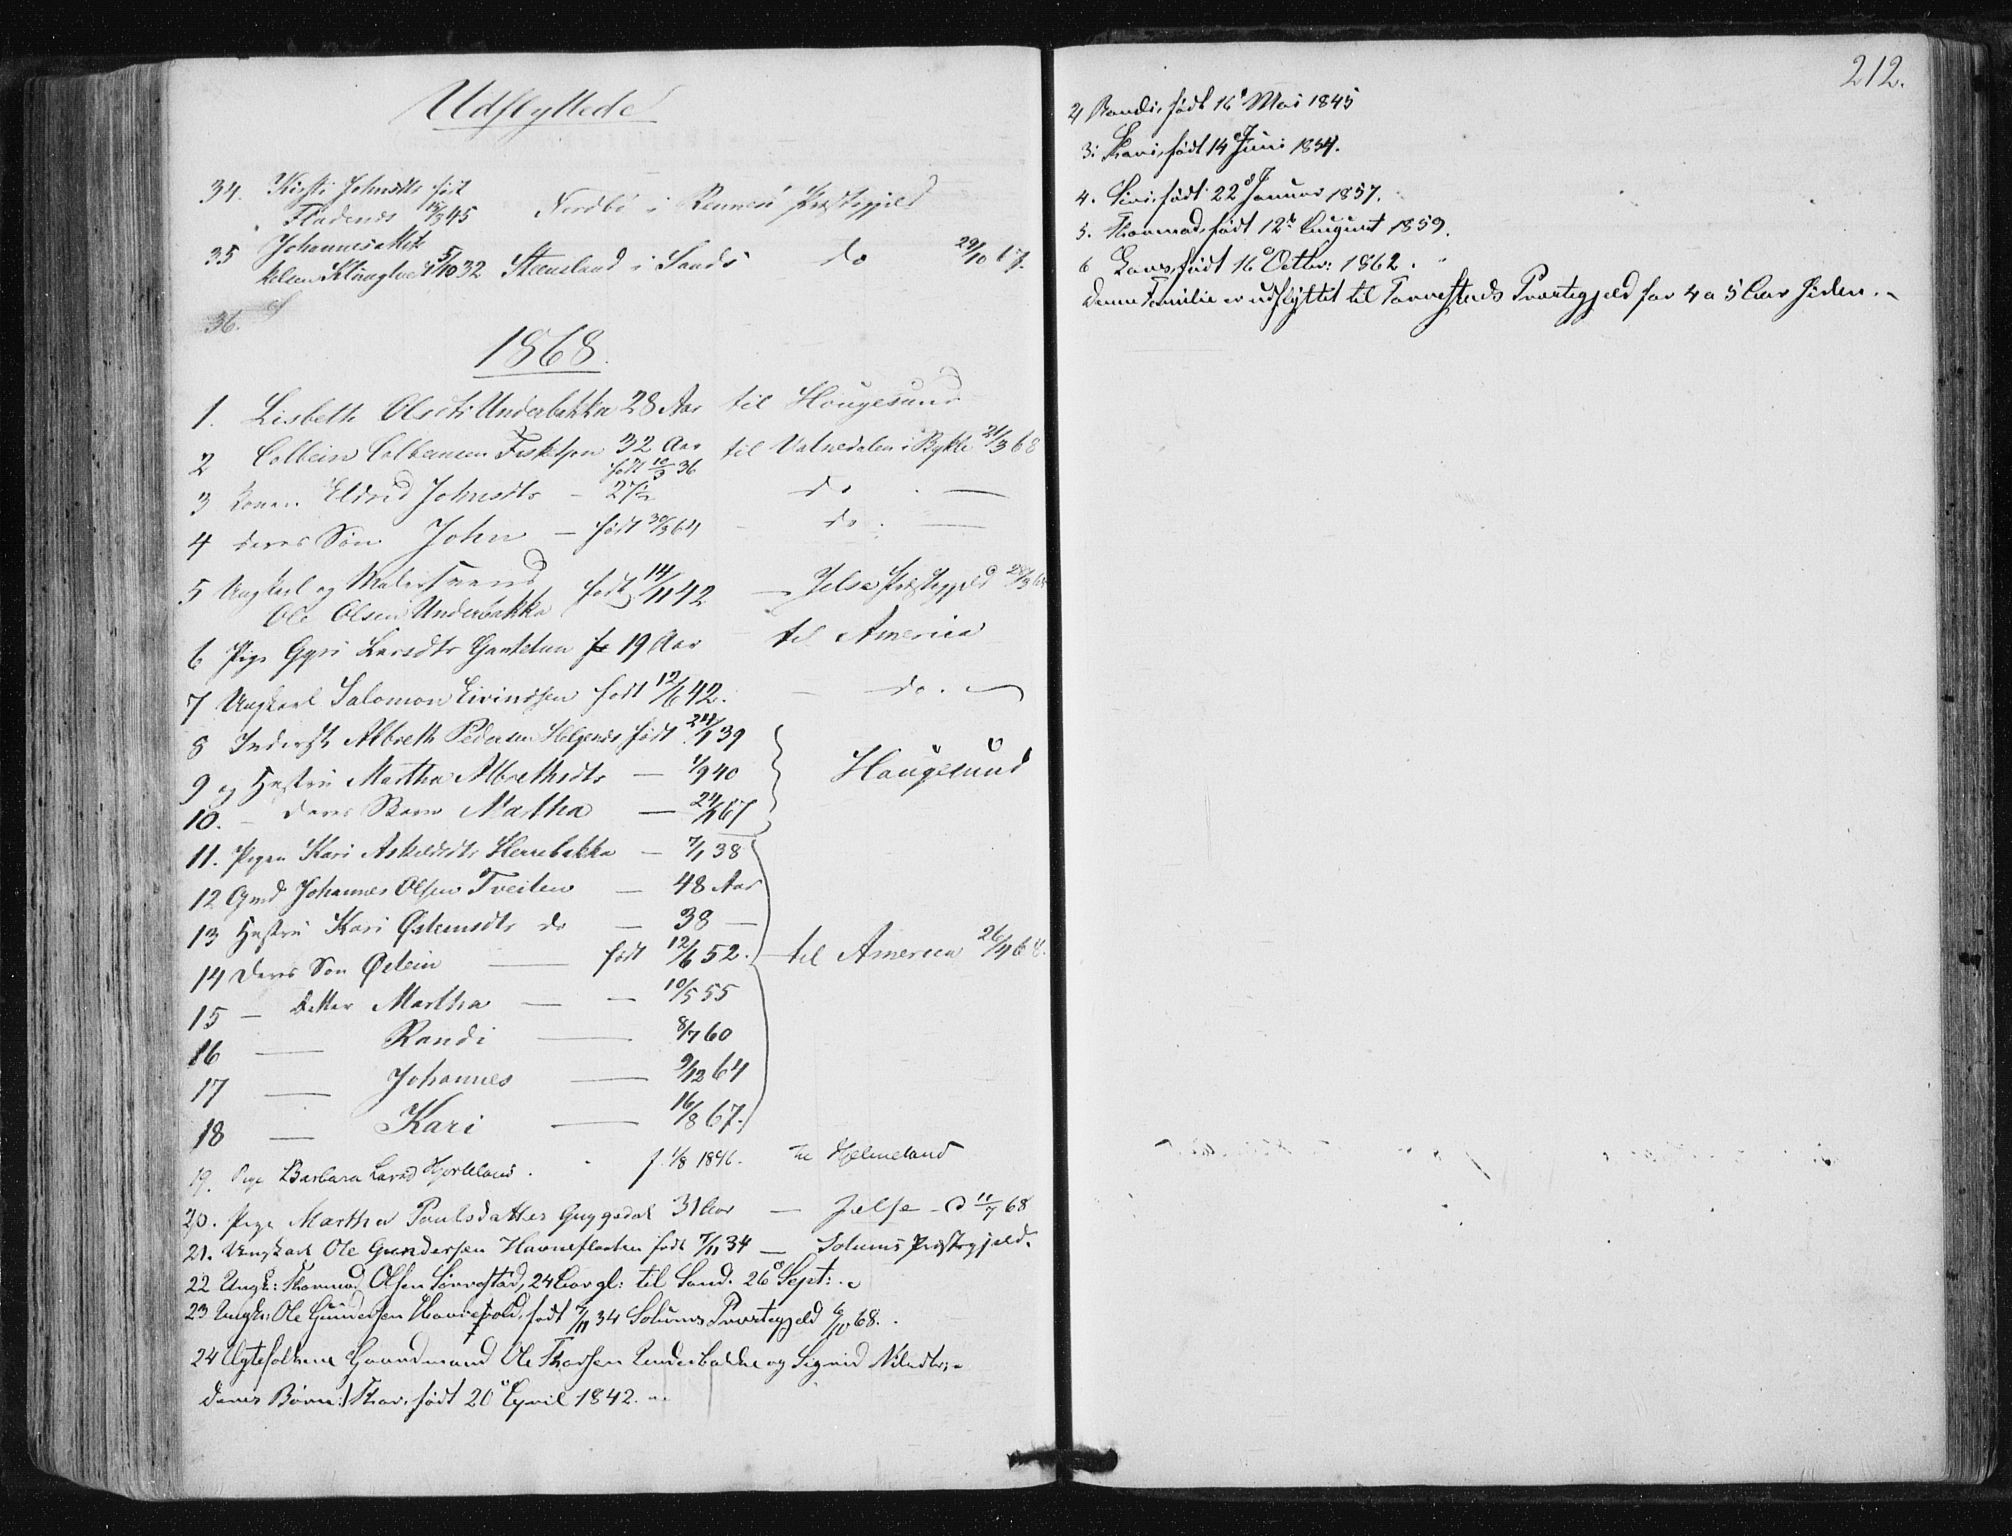 Udflyttede
34. Kirsti Johnsdtr født
Fladenes 45 Nordbö i Rennesö Præstegjeld
35 Johannes
5/10 32 i Sands do 29/10 67.
36.
1868.
1. Lisbeth Olsdtr Underbakka 28 Aar til Hougesund
2 Colbein Colbeinsen 32 Aar til Valnedalen i Bykle 21/3 68
født 10/3 36
3 Konen Eldrid Johnsdtr - 27½ do. —
4 deres Sön John - født 30/3 64 - do. —
5 Ungkarl og født 14/11 42 — Jelse Præstegjeld 28/3 68
Ole Olsen Underbakka
6 Pige Gyri Larsdtr 19 Aar til America
7 Ungkarl Salomon Eivindsen født 12/6 42. - do. —
8 Inderst Albreth Pedersen født 24/1 39
9 og Hustru Martha Albrethsdtr — 1/9 40 Haugesund
10. - deres Barn Martha — 67
11. Pigen Kari Askildsdtr Herrebakka — 7/1 38
12 Gmd Johannes Olsen Tveiten — 48 Aar
13 Hustru Kari Østensdtr do — 38 —
14 deres Sön Østein — født 12/6 52. til America 26/4 68.
15 — Datter Martha — — 10/5 55
16 — Randi — 8/7 60
17 — Johannes — 9/12 64
18 — Kari — 16/8 67.
19. Pige Barbara Larsd Hjorteland. - f. 1/8 1846. Til Hjelmeland
20. Pige Martha Paulsdatter Guggedal 31 Aar — Jelse - d 11/7 68
21. Ungkarl Ole Gundersen født 7/11 34 — Solums Præstegjeld.
22 Ungk: Thormod Olsen 24 Aar gl: til Sand. 26d Sept:
23 Ungk: Ole Gundersen født 7/11 34 Solums Præstegjeld 6/10 68.
24 Ægtefolkene Gaardmand Ole Thorsen Underbakke og Sigrid Nilsdtr:
deres Børn: 1 Thor, født 20d April 1842.
212.
2 Randi, født 16d Mai 1845
3: Kari, født 14d Juni 1854.
4. Siri, født 22d Januar 1857.
5. Thormod, født 12te August 1859.
6 Lars, født 16d Octbr: 1862.
denne Familie er udflyttet til Torvestads Præstegjeld for 4 a 5 Aar siden.